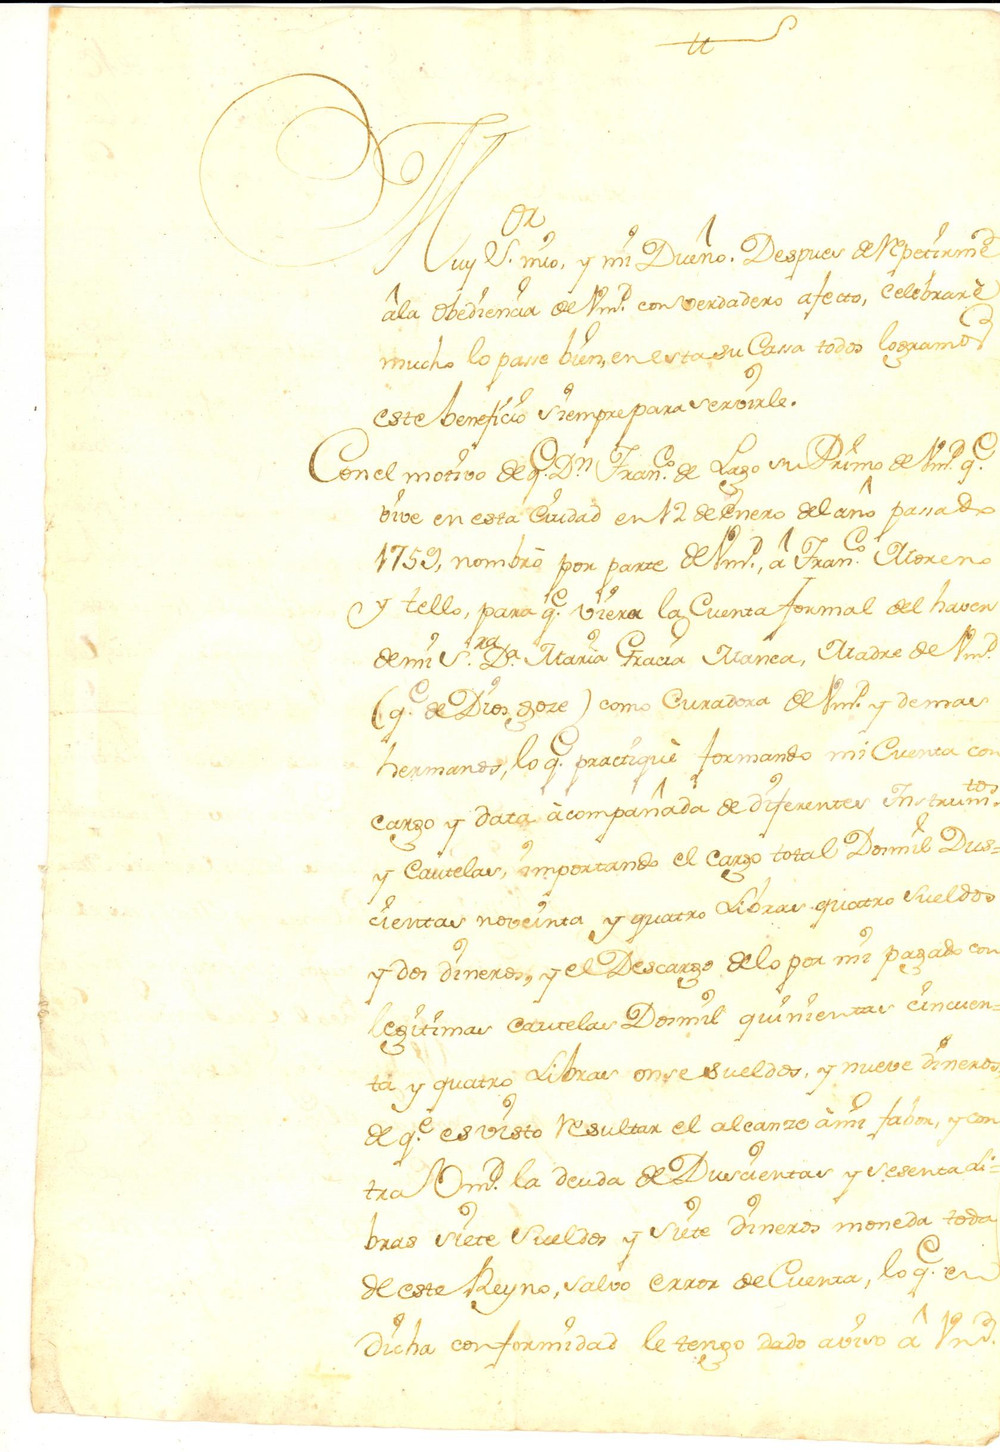 Muy S.or mio, y mi Dueño. Despues de Repetirme
â la obediencia de Vmd. con verdadero afecto, celebrarè
mucho lo passe bien, en esta su Cassa todos logramos
este beneficio siempre para servirle.
Con el motivo de q.e Dn Fran.co de Lago su Primo de Vmd. q.e
vive en esta Ciudad en 12 de Enero del año passado
1759, nombrò por parte de Vmd., â Fran.co Moreno
y tello, para q.e viera la Cuenta formal del haver
de mi S.ra D.a Maria Gracia Manca, Madre de Vmd.
(q.e de Dios goze) como Curadora de Vmd. y demas
hermanos, lo q.e practiquè formando mi Cuenta con
cargo y data àcompañada de diferentes Instrum.tos
y Cautelas, importando el cargo total Dosmil Dus=
cientas noveinta y quatro Libras quatro sueldos
y dos dineros, y el Descargo de lo por mi pagado con
legitimas cautelas Dosmil quinientas cincuen=
ta y quatro Libras onse sueldos, y nueve dineros,
de q.e es visto Resultar el alcanze à mi fabor, y con
tra Vmd. la deuda de Duscientas y sesenta Li=
bras siete sueldos y siete dineros moneda toda
de este Reyno, salvo error de Cuenta, lo q.e en
dicha conformidad le tengo dado aviso â Vmd.